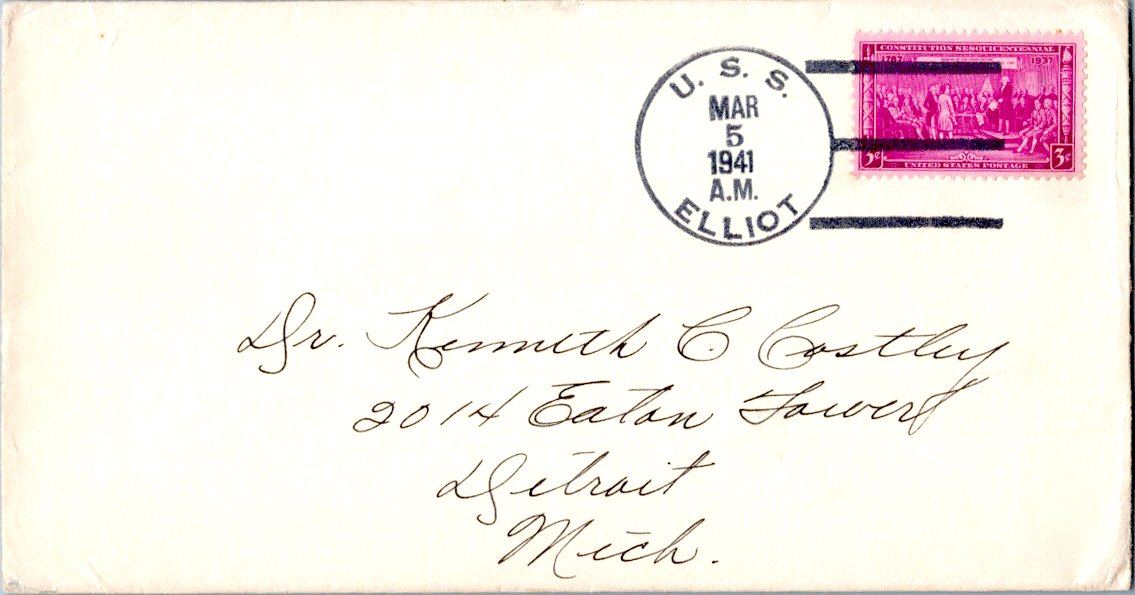 U. S. S.
MAR
5
1941
A.M.
ELLIOT
CONSTITUTION SESQUICENTENNIAL
1787 1937
3¢ 3¢
UNITED STATES POSTAGE
Dr. Kenneth C. Costley
2014 Eaton Tower
Detroit
Mich.